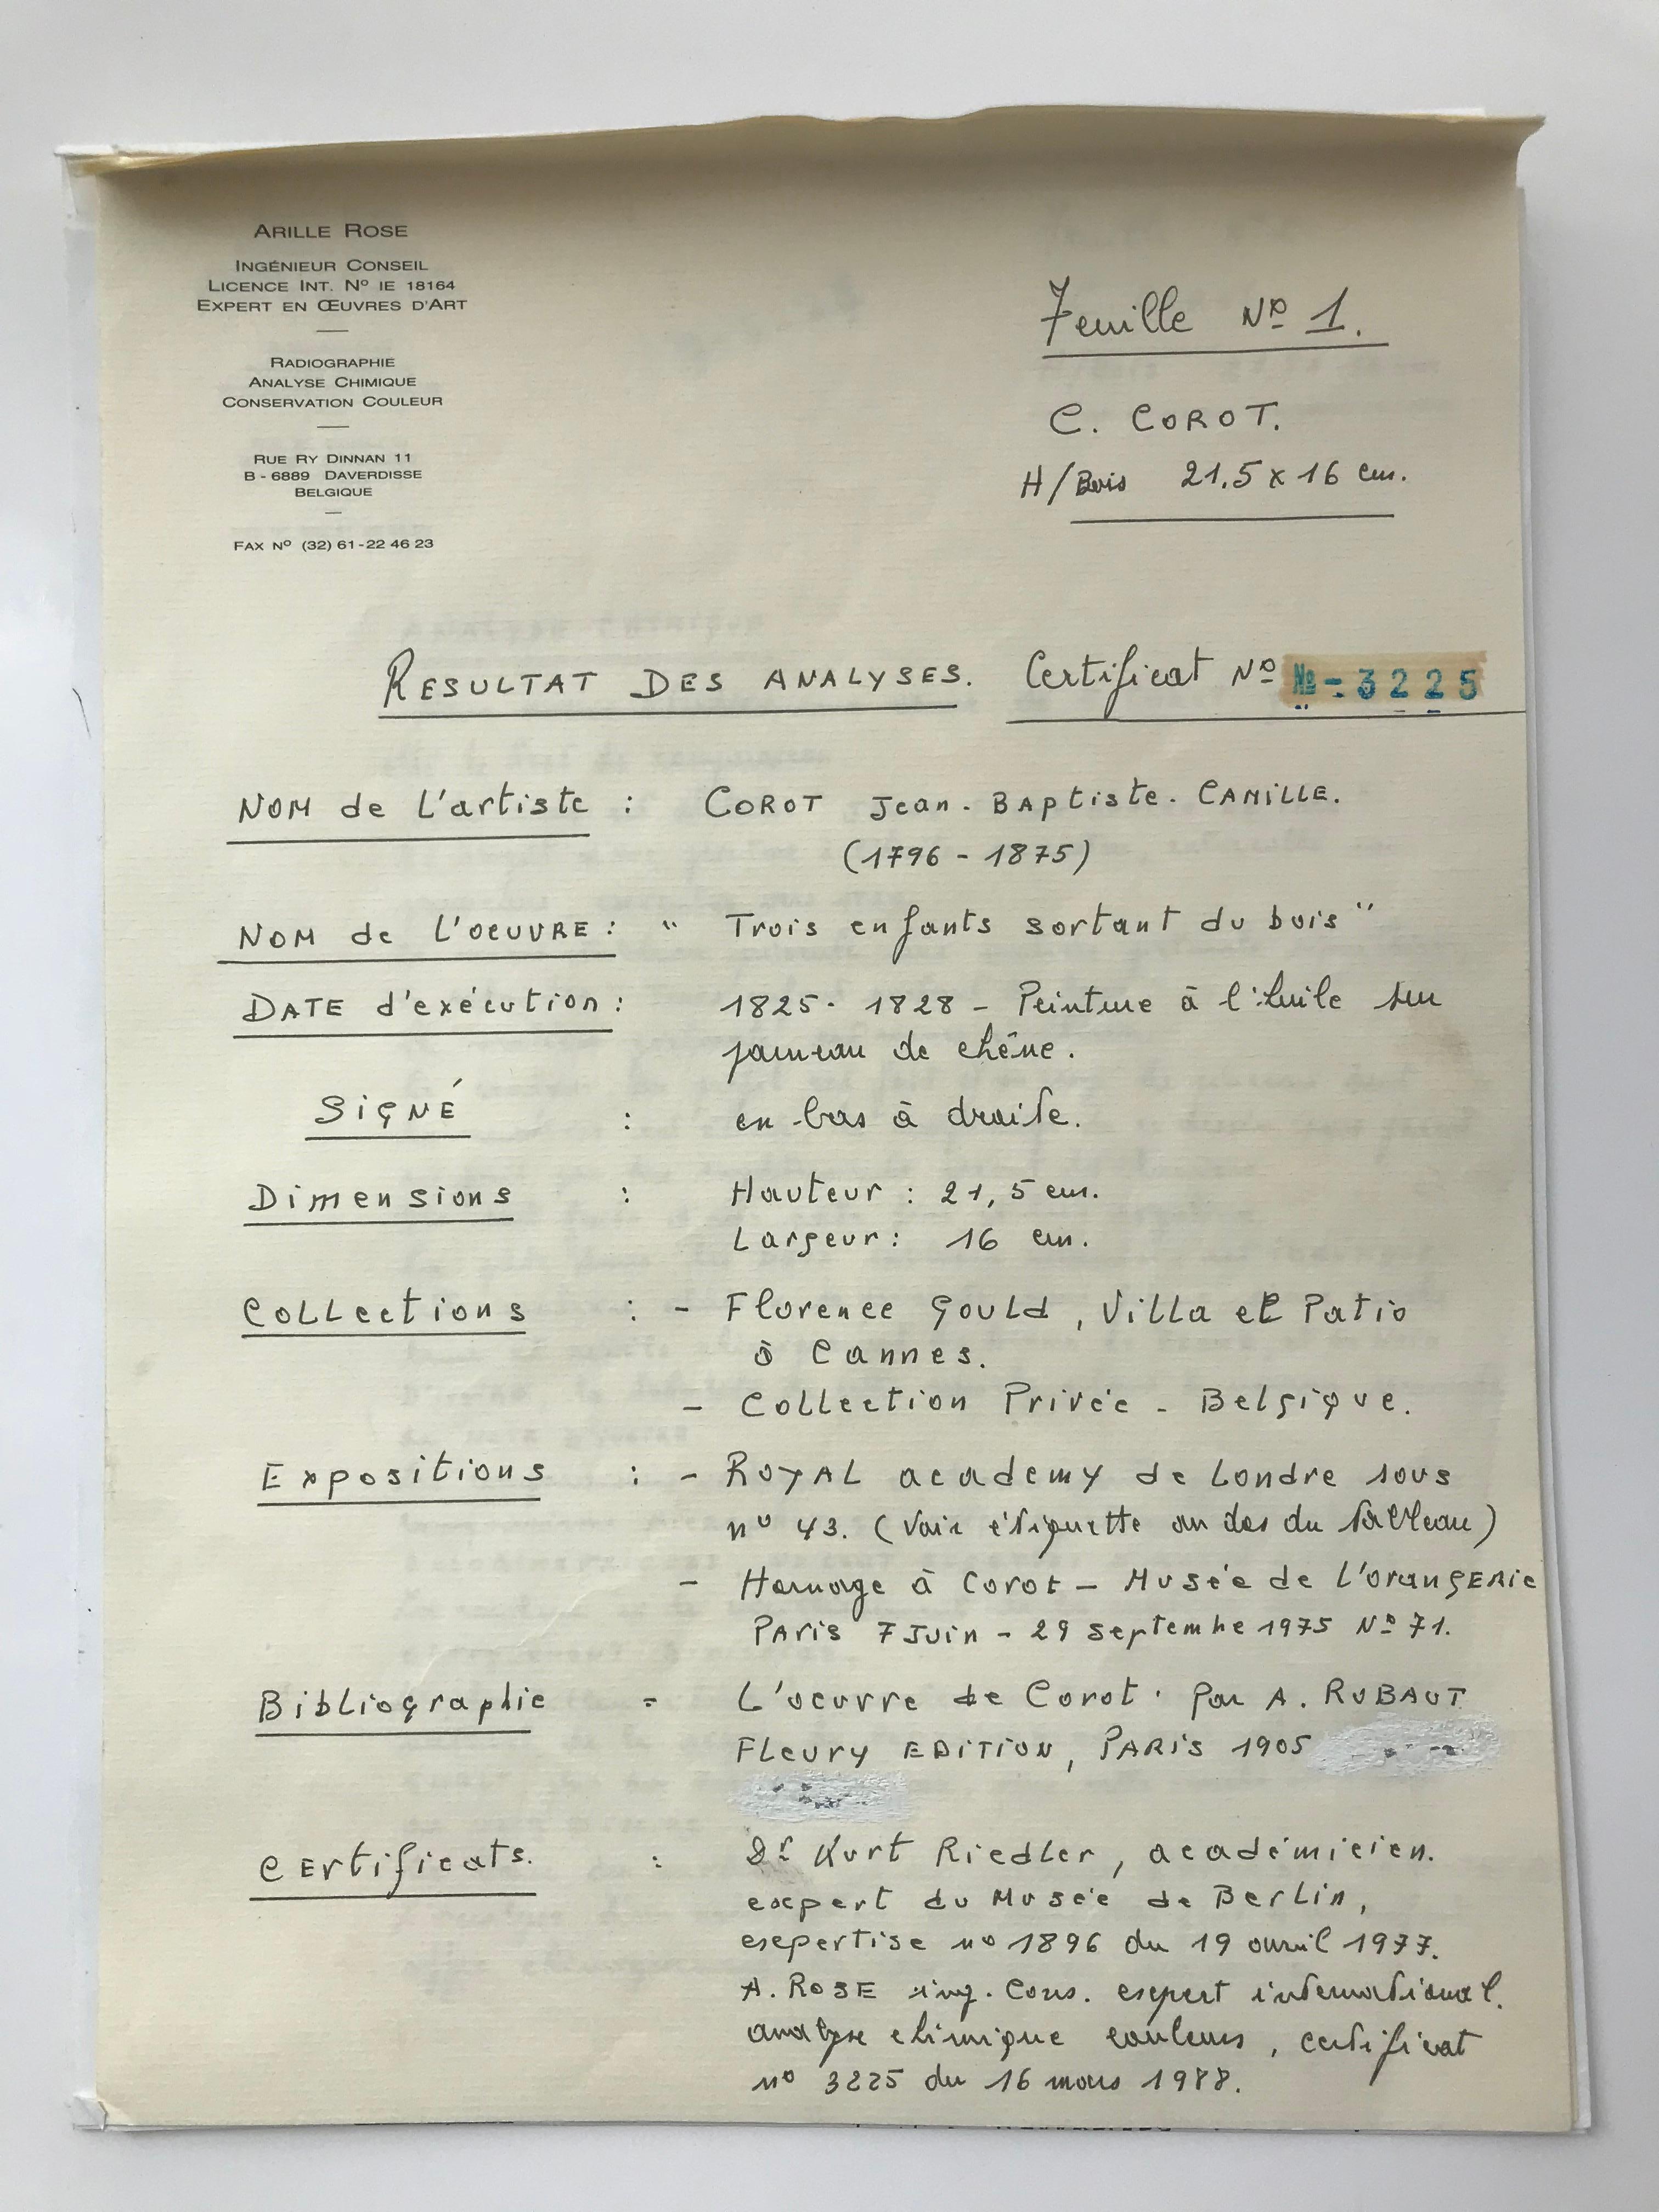 ARILLE ROSE
INGÉNIEUR CONSEIL
LICENCE INT. Nº IE 18164
EXPERT EN ŒUVRES D'ART
RADIOGRAPHIE
ANALYSE CHIMIQUE
CONSERVATION COULEUR
RUE RY DINNAN 11
B - 6889 DAVERDISSE
BELGIQUE
FAX Nº (32) 61-22 46 23
Feuille Nº 1.
C. COROT.
H/Bois 21.5 x 16 cm.
RESULTAT DES ANALYSES. Certificat Nº Nº - 3225
NOM de L'artiste : COROT Jean - BAptiste - CAMILLE.
(1796 - 1875)
NOM de L'OEUVRE : " Trois enfants sortant du bois "
DATE d'exécution : 1825 - 1828 - Peinture à l'huile sur
panneau de chêne.
SiGNÉ : en bas à droite.
Dimensions : Hauteur : 21,5 cm.
Largeur : 16 cm.
Collections : - Florence Gould, Villa et Patio
à Cannes.
- Collection Privée - Belgique.
Expositions : - ROYAL academy de Londre sous
nº 43. (Voir étiquette au dos du tableau)
- Homage à Corot - Musée de L'orangERie
PAris 7 Juin - 29 septembre 1975 Nº 71.
Bibliographie = L'oeuvre de Corot. Par A. RUBAUT
FLeury EDITION, PARIS 1905
CErtificats. : Dr Kurt Riedler, académicien.
expert du Musée de Berlin,
expertise nº 1896 du 19 avril 1977.
A. ROSE ing. Cons. expert international.
analyse chimique couleurs, certificat
nº 3225 du 16 mars 1988.